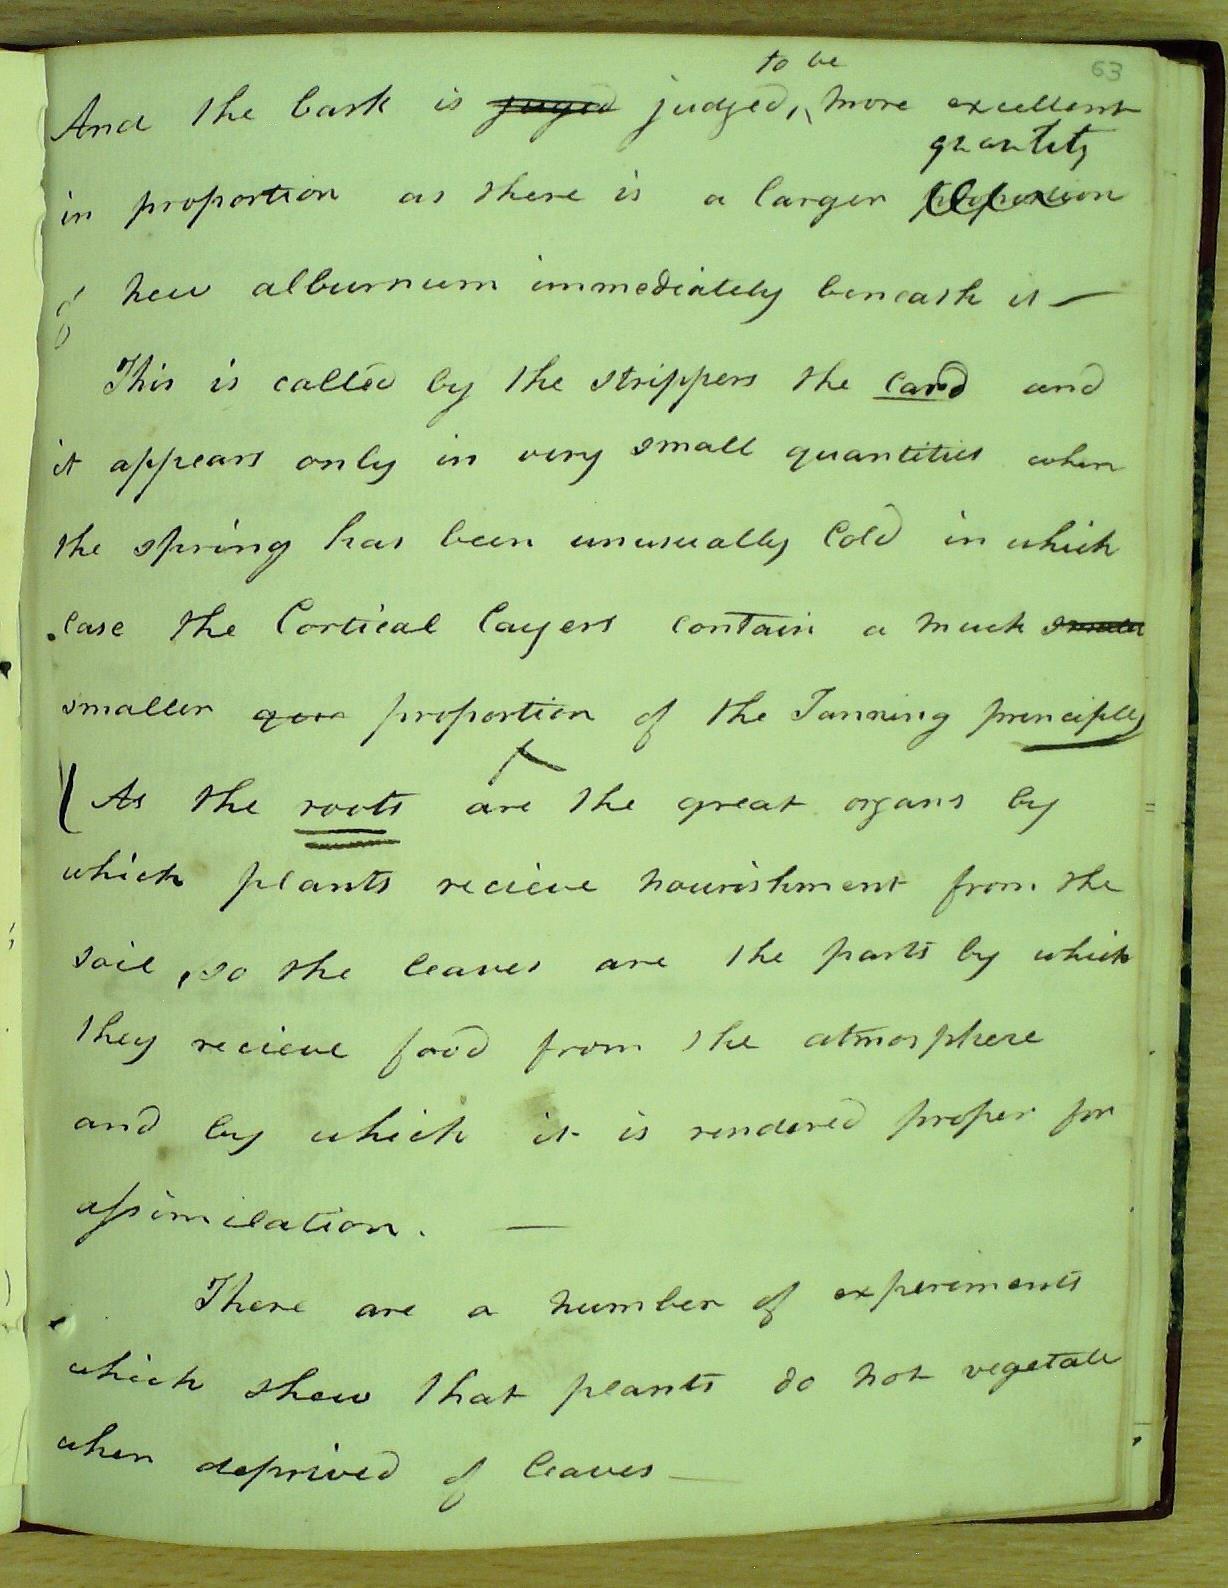 63
to be
And the bark is juged judged, more excellent
quantity
in proportion as there is a larger proportion
of new alburnum immediately beneath it —
This is called by the strippers the card and
it appears only in very small quantities when
the spring has been unusually Cold in which
case the Cortical layers contain a much small
smaller proportion of the Tanning principle,
As the roots are the great organs by
which plants recieve nourishment from the
soil, so the leaves are the parts by which
they recieve food from the atmosphere
and by which it is rendered proper for
assimilation. —
There are a number of experiments
which shew that plants do not vegetate
when deprived of leaves —